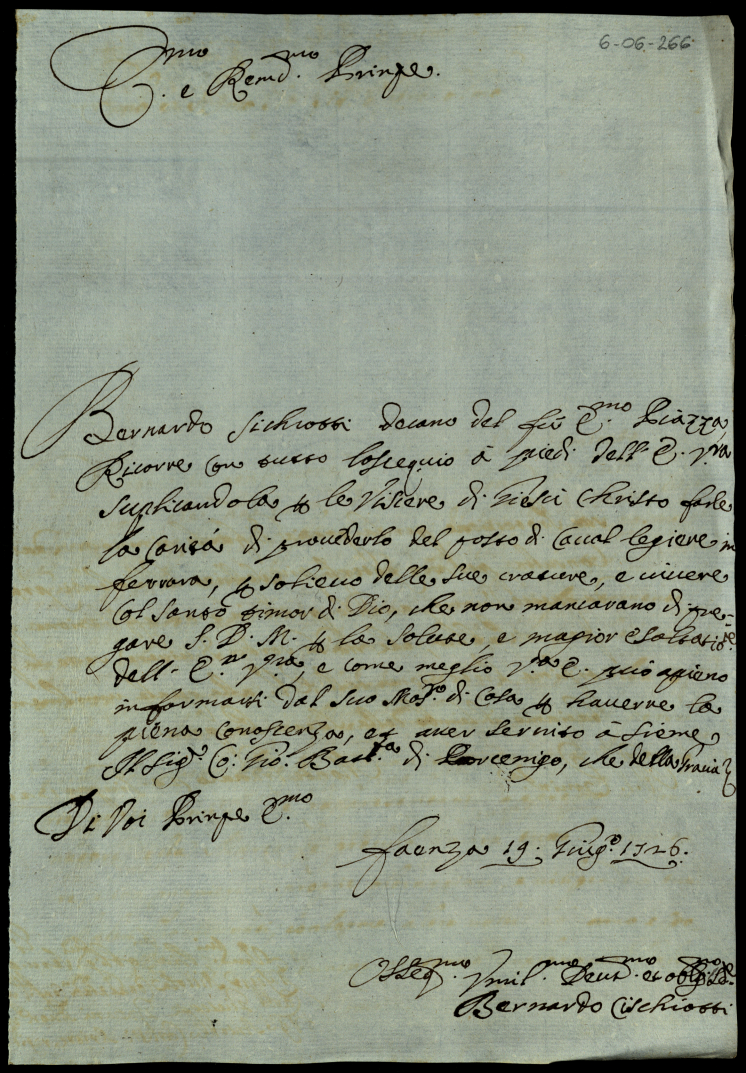 6-06-266
E.mo e Reud.mo Prinpe.
Bernardo Sichiotti decano del fù E.mo Piazza
Ricorre con tutto l'osequio à piedi dell' E. V.ra
suplicandola p le Viscere di Giesù Christo farle
la carità di provederlo del posto di Caval legiere in
ferrara, p solievo delle sue creature, e vivere
col santo timor di Dio, che non mancarano di pre=
gare S. D. M. p la salute, e magior esaltatio.ne
dell' E.m V.ra, e come meglio V.a E. può apieno
informarsi dal suo Mas.ro di Casa p haverne la
piena conoscenza, et aver servito à sieme
Il Sig.r Co: Gio. Batt.ta di Porcenigo, che della gracia
Di Voi Prinpe E.mo
faenza 19: Giug.o 1726.
Osseq.mo Vmil.mo Deut.mo et oblg.mo
Bernardo Cischiotti